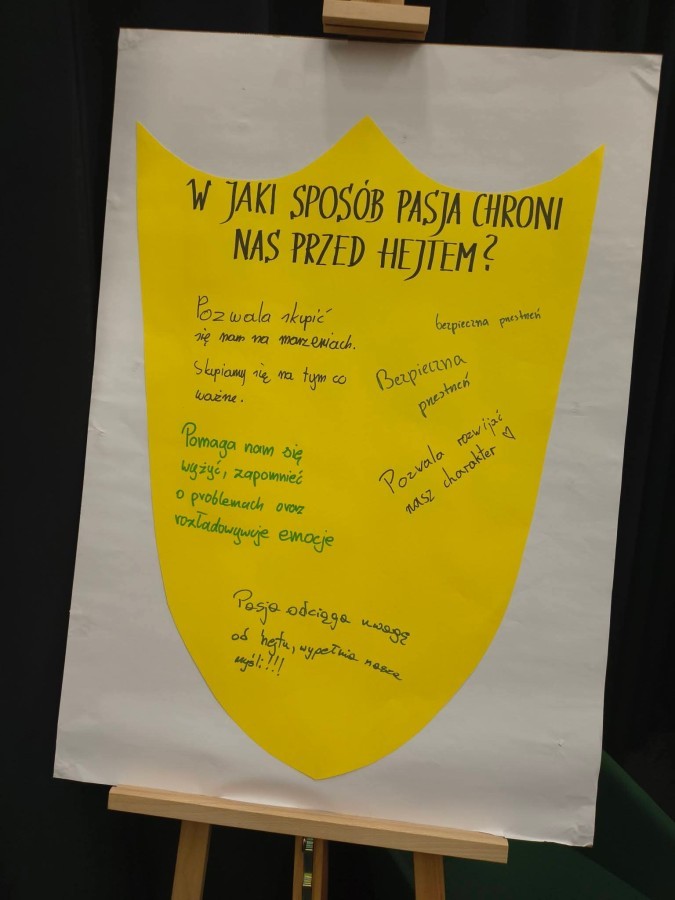 W JAKI SPOSÓB PASJA CHRONI
NAS PRZED HEJTEM?
Pozwala skupić
się nam na marzeniach.
Skupiamy się na tym co
ważne.
bezpieczna przestrzeń
Bezpieczna
przestrzeń
Pozwala rozwijać
nasz charakter ♡
Pomaga nam się
wyżyć, zapomnieć
o problemach oraz
rozładowywuje emocje
Pasja odciąga uwagę
od hejtu, wypełnia nasze
myśli!!!